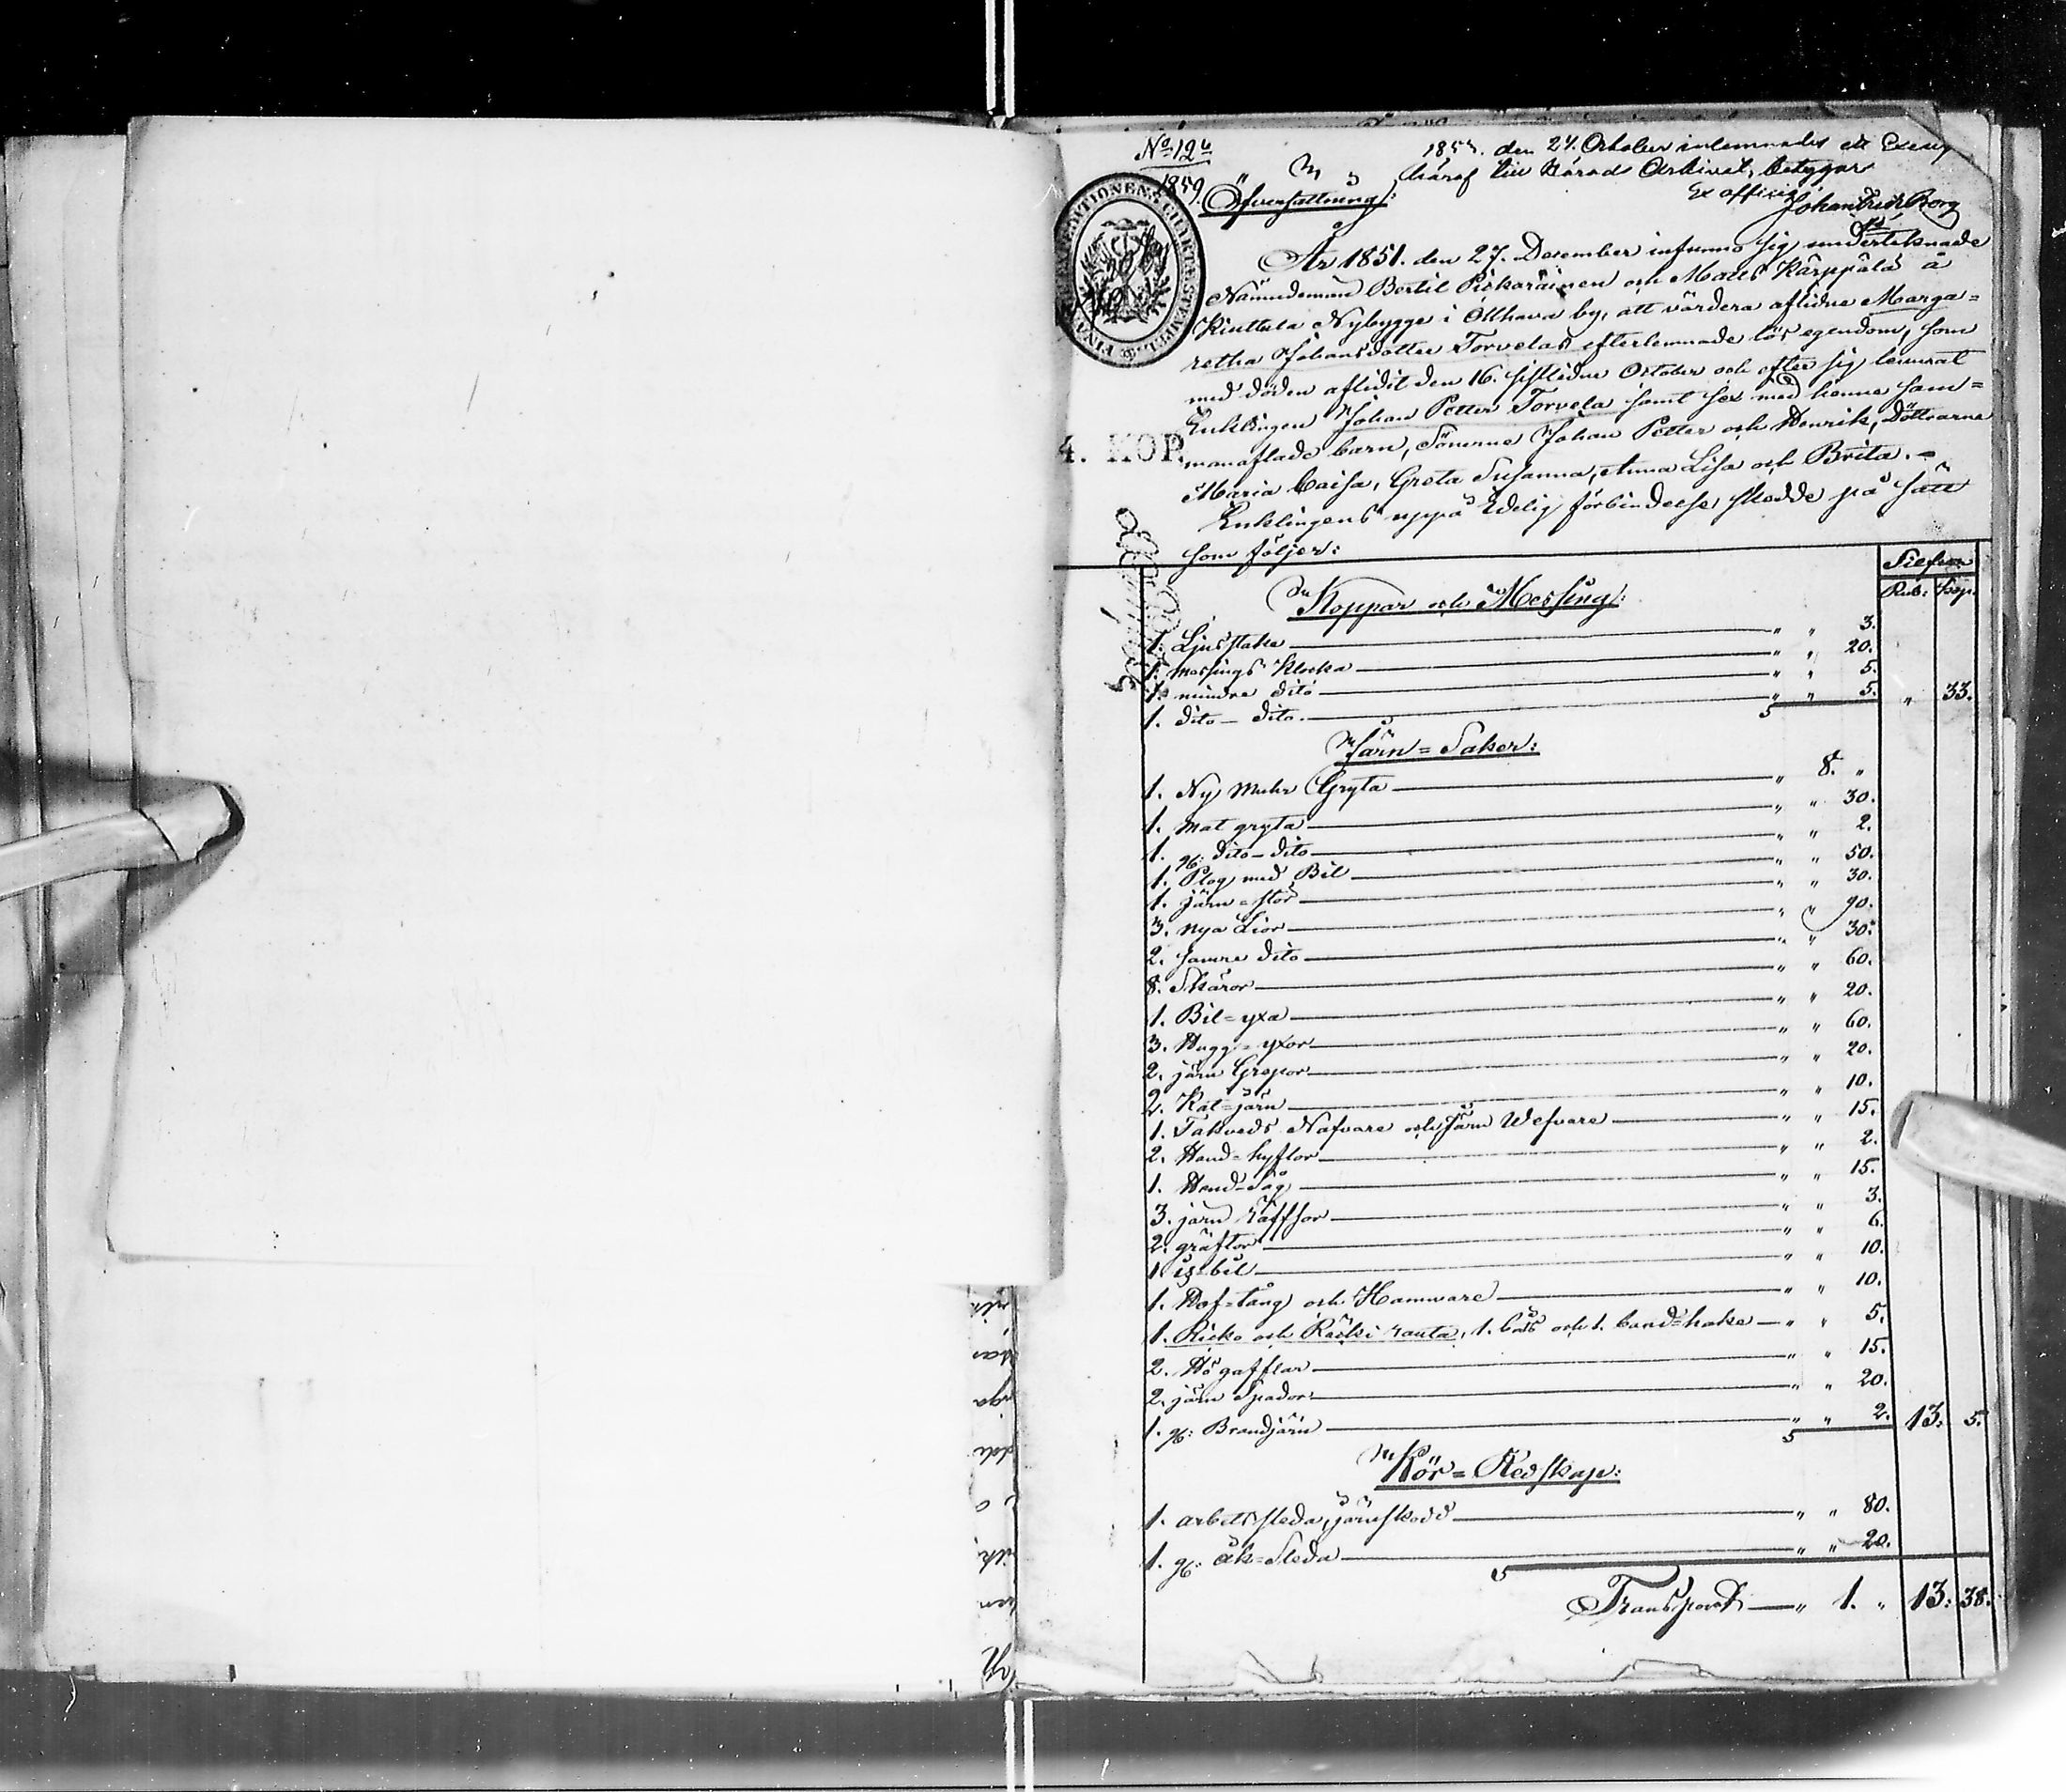 No 124
1859.
Öfversättning:
185. den 24. Octobr inlemnades ett Exempl
häraf till Härads Arkivet, betygar
Ex officio
Johan Fredr Borg
4. KOP.
År 1851. den 27. December infunno sig undertecknade
Nämndemän Bertil Pickaräinen och Matts Kärppälä å
Kiuttula Nybygge i Olhava by, att värdera aflidne Marga=
retha Johansdotter Torvelas efterlemnade lös egendom, som
med döden aflidit den 16. sistlidne October och efter sig lemnat
Enklingen Johan Petter Torvela samt sex med henne sam=
manaflade barn, Sönerne Johan Petter och Henrik, Döttrarne
Maria Caisa, Greta Susanna, Anna Lisa och Brita. -
Enklingens uppå Edelig förbindelse skedde på sätt
som följer:
Silfver
Rub: Kop.
Koppar och Messing:
1. Ljusstake — " " 3.
1. messings Klocka — " " 20.
1. mindre dito — " " 5.
1. dito - dito. — " " 5. " 33.
Järn=Saker:
1. Ny Muhr Gryta — " 8. "
1. mat gryta — " " 30.
1. gl: dito - dito — " " 2.
1. Plog med Bil — " " 50.
1. järn=stör — " " 30.
3. nya Lior — " " 90.
2. samre dito — " " 30.
8. Skäror — " " 60.
1. Bil=yxa — " " 20.
3. Hugg=yxor — " " 60.
2. järn Grepor — " " 20.
2. Kat=järn — " " 10.
1. Takveds Nafvare och Järn Wefvare — " " 15.
2. Hand=hyflor — " " 2.
1. Hand-Såg — " " 15.
3. järn räffsor — " " 3.
2. gräftor — " " 6.
1. is=bil — " " 10.
1. Hof=tång och Hammare — " " 10.
1. Ricko och Räcki rauta, 1. bås och 1. band=hake — " " 5.
2. Högafflar — " " 15.
2. järn Spador — " " 20.
1. gl: Brandjärn — " " 2. 13. 5.
Kör=Redskap:
1. arbetssleda, järnskodd — " " 80.
1. gl: åk=Sleda — " " 20.
Transport — " 1. " 13. 38.